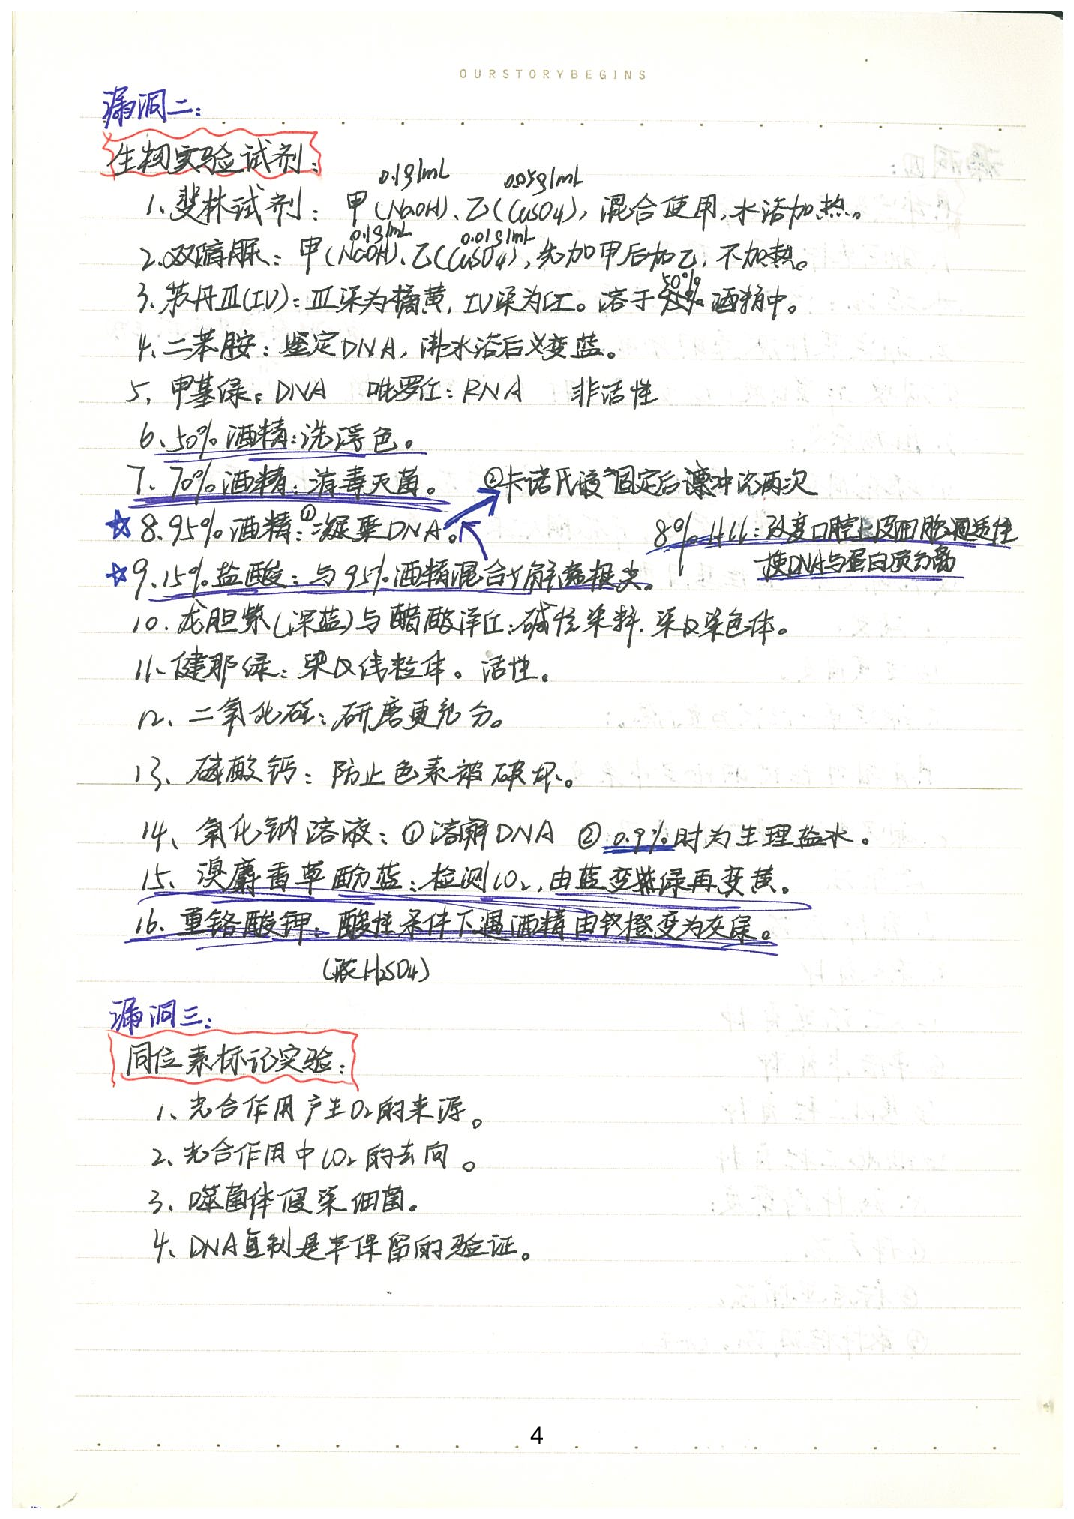 OURSTORYBEGINS
漏洞二:
生物实验试剂:
0.1g/mL 0.05g/mL
1、斐林试剂: 甲(NaOH)、乙(CuSO4), 混合使用,水浴加热。
0.1g/mL 0.01g/mL
2.双缩脲: 甲(NaOH)、乙(CuSO4), 先加甲后加乙, 不加热。
50%
3、苏丹Ⅲ(IV): Ⅲ染为橘黄, IV染为红。溶于酒精中。
4、二苯胺: 鉴定DNA, 沸水浴后变蓝。
5、甲基绿: DNA 吡罗红: RNA 非活性
6、50%酒精: 洗浮色。
7、70%酒精: 消毒灭菌。 ②卡诺氏液固定后漂冲洗两次
☆8.95%酒精:①凝聚DNA。 8% HCl: 改变口腔上皮细胞通透性
使DNA与蛋白质分离
☆9.15%盐酸: 与95%酒精混合解离根尖。
10、龙胆紫(深蓝)与醋酸洋红: 碱性染料, 染仅染色体。
11、健那绿: 染仅线粒体。活性。
12、二氧化硅: 研磨更充分。
13、碳酸钙: 防止色素被破坏。
14、氯化钠溶液: ①溶解DNA ②0.9%时为生理盐水。
15、溴麝香草酚蓝: 检测CO2, 由蓝变绿再变黄。
16、重铬酸钾: 酸性条件下遇酒精由橙变为灰绿。
(浓H2SO4)
漏洞三:
同位素标记实验:
1、光合作用产生O2的来源。
2、光合作用中CO2的去向。
3、噬菌体侵染细菌。
4、DNA复制是半保留的验证。
4